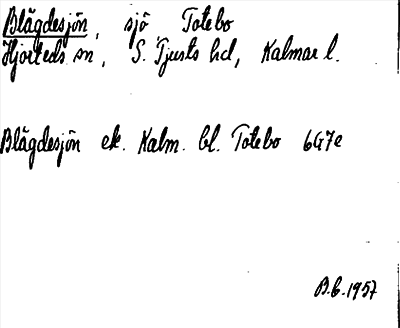 Blågdesjön, sjö Totebo
Hjorteds sn, S. Tjusts hd, Kalmar l.
Blågdesjön ek. Kalm. bl. Totebo 6G7e
B.b. 1957